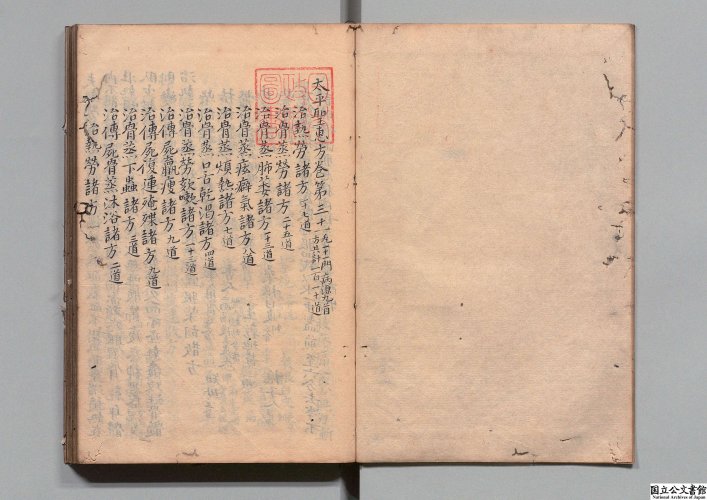 太平聖惠方卷第三十一 凡一十一門 病源九首 方共計一百一十道
治熱勞諸方 十七道
治骨蒸勞諸方 二十五道
治骨蒸肺痿諸方 十三道
治骨蒸痃癖氣諸方 八道
治骨蒸煩熱諸方 七道
治骨蒸口舌乾渴諸方 四道
治骨蒸勞欬嗽諸方 一十二道
治傳屍羸瘦諸方 九道
治傳屍復連殗殜諸方 九道
治骨蒸下蟲諸方 三道
治傳屍骨蒸沐浴諸方 二道
治熱勞諸方
国立公文書館
National Archives of Japan